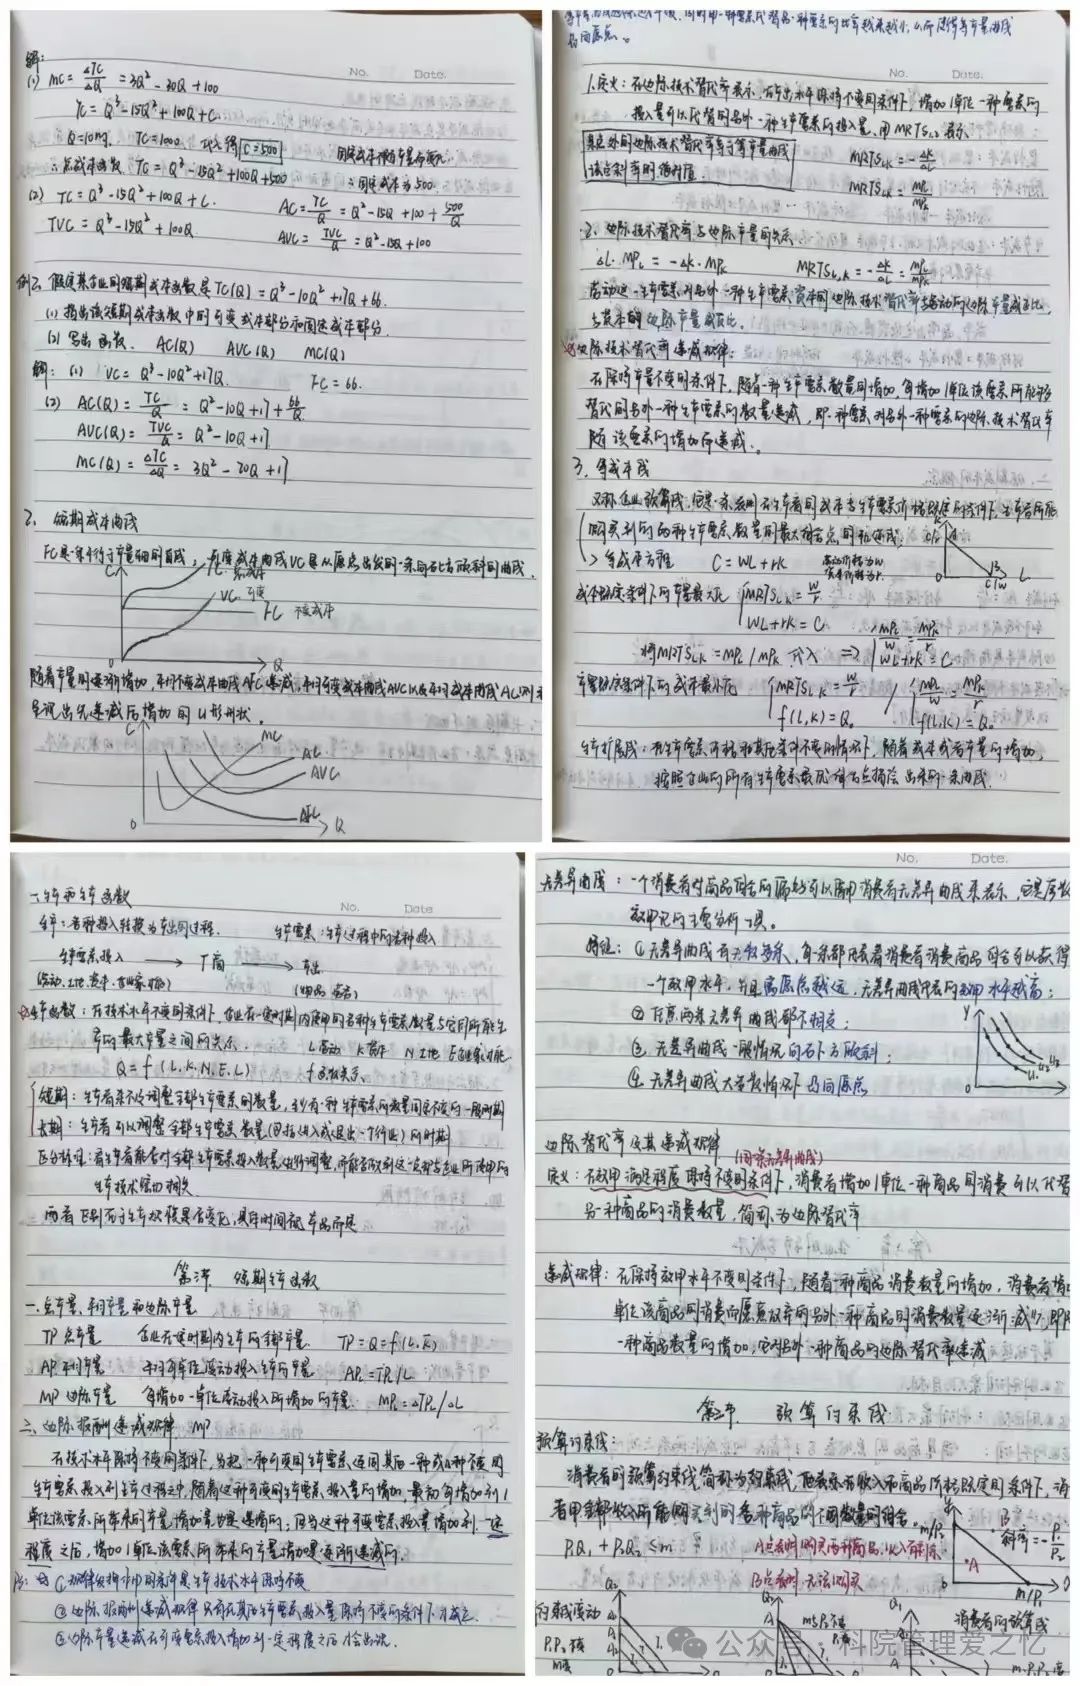 解:
No. Date.
(1) MC = ΔTC/ΔQ = 3Q² - 30Q + 100
TC = Q³ - 15Q² + 100Q + C.
Q=10时, TC=1000 代入得 C=500 固定成本
∴总成本函数 TC = Q³ - 15Q² + 100Q + 500 ∴固定成本为500.
(2) TC = Q³ - 15Q² + 100Q + C. AC = TC/Q = Q² - 15Q + 100 + 500/Q
TVC = Q³ - 15Q² + 100Q. AVC = TVC/Q = Q² - 15Q + 100
例二 假定某企业的短期成本函数是TC(Q) = Q³ - 10Q² + 17Q + 66.
(1) 指出该短期成本函数中的可变成本部分和固定成本部分.
(2) 写出函数. AC(Q) AVC(Q) MC(Q)
解: (1) VC = Q³ - 10Q² + 17Q. FC = 66.
(2) AC(Q) = TC/Q = Q² - 10Q + 17 + 66/Q
AVC(Q) = TVC/Q = Q² - 10Q + 17
MC(Q) = ΔTC/ΔQ = 3Q² - 20Q + 17
2. 短期成本曲线
FC是一条平行于产量轴的直线; VC是从原点出发的一条向右上方倾斜的曲线.
C TC 总成本
VC 可变
FC 不变成本
O Q
随着产量的逐渐增加, 平均不变成本曲线AFC递减, 平均可变成本曲线AVC以及平均成本曲线AC
呈现出先递减后增加的U形形状.
C MC
AC
AVC
AFC
O Q
凸向原点。
1. 定义: 在边际技术替代率表示, 在产出水平保持不变条件下, 增加1单位一种要素的
投入量可以代替的另外一种生产要素的投入量, 用MRTS表示
边际技术替代率等于等产量曲线 MRTS_LK = -ΔK/ΔL
该点斜率的绝对值 MRTS_LK = MP_L/MP_K
2. 边际技术替代率与边际产量的关系
ΔL·MP_L = -ΔK·MP_K MRTS_L,K = -ΔK/ΔL = MP_L/MP_K
劳动这一生产要素对另外一种生产要素资本的边际技术替代率与劳动的边际产量成正比
与资本的边际产量成反比.
边际技术替代率递减规律:
在保持产量不变的条件下, 随着一种生产要素数量的增加, 每增加1单位该要素所能够
替代的另外一种生产要素的数量递减, 即一种要素对另外一种要素的边际技术替代率
随该要素的增加而递减.
3. 等成本线
又称企业预算线,
购买到的两种生产要素数量的最大组合点的轨迹线.
等成本方程 C = wL + rK 劳动价格为w 资本价格为r
C/r K O C/w L
成本既定条件下的产量最大化 MRTS_LK = w/r
wL + rK = C
将MRTS_LK = MP_L/MP_K 代入 ⇒ MP_L/w = MP_K/r
wL + rK = C
产量既定条件下的成本最小化 MRTS_L,K = w/r / MP_L/w = MP_K/r
f(L,K) = Q₀ f(L,K) = Q₀
生产扩展线: 在生产要素价格和其他条件不变的情况下, 随着成本或者产量的增加,
按照企业的所有生产要素最优组合点描绘出来的一条曲线.
一. 生产和生产函数
No. Date
生产: 各种投入转换为产出的过程. 生产要素: 生产过程中的各种投入
生产要素投入 → 厂商 → 产出
(劳动.土地.资本.企业家才能) (物品 劳务)
生产函数: 在技术水平不变的条件下, 企业在一定时期内使用的各种生产要素数量与它们所能生
产的最大产量之间的关系. L劳动 K资本 N土地 E企业家才能
Q = f(L.K.N.E.) f函数关系.
短期: 生产者来不及调整全部生产要素的数量, 至少有一种生产要素的数量固定不变的一段时期
长期: 生产者可以调整全部生产要素数量(包括进入或退出一个行业)的时期
生产技术密切相关
第二节 短期生产函数
一. 总产量、平均产量和边际产量
TP 总产量 企业在一定时期内生产的全部产量. TP = Q = f(L,K̄)
AP 平均产量 平均每单位劳动投入生产的产量 AP_L = TP_L/L
MP 边际产量 每增加一单位劳动投入所增加的产量. MP_L = ΔTP_L/ΔL
二、边际报酬递减规律 MP
在技术水平保持不变的条件下, 当把一种可变的生产要素连同其他一种或几种不变的
生产要素投入到生产过程之中, 随着这种可变的生产要素投入量的增加, 最初每增加1
单位该要素所带来的产量增加量是递增的; 但当这种可变要素投入量增加到一定
程度之后, 增加1单位该要素所带来的产量增加量是逐渐递减的.
①规律发挥作用的条件是生产技术水平保持不变
②边际报酬递减规律只有在其他生产要素投入量保持不变的条件下才成立.
③边际产量递减在可变要素投入增加到一定程度之后才会出现.
No. Date.
无差异曲线: 一个消费者对商品组合的偏好可以用消费者无差异曲线来表示, 它是序数
效用论的主要分析工具.
特征: ①无差异曲线有无数多条, 每一条都代表着消费者消费商品组合可以获得
一个效用水平, 并且离原点越远, 无差异曲线代表的效用水平越高;
②任意两条无差异曲线都不相交;
③. 无差异曲线一般情况向右下方倾斜;
④. 无差异曲线大多数情况下凸向原点
Y U₁ U₂ U₃ O X
边际替代率及其递减规律 (同一条无差异曲线)
定义: 在效用满足程度保持不变的条件下, 消费者增加1单位一种商品的消费可以代替
另一种商品的消费数量, 简称为边际替代率
递减规律: 在保持效用水平不变的条件下, 随着一种商品消费数量的增加, 消费者增
单位该商品的消费而愿意放弃的另外一种商品的消费数量逐渐减少, 即
一种商品数量的增加, 它对另外一种商品的边际替代率递减
第二节 预算约束线
预算约束线:
消费者的预算约束线, 简称为约束线, 它表示在收入和商品价格既定的条件下, 消
费者用全部收入所能购买到的各种商品的不同数量的组合.
P₁Q₁ + P₂Q₂ ≤ m A点表明购买两种商品, 收入有剩余
B点表明, 无法购买
m/P₂ B 斜率 = -P₁/P₂
A
O m/P₁
约束线变动 Q₂ Q₂ Q₁ 消费者的预算线
公众号 · 科院管理爱之忆